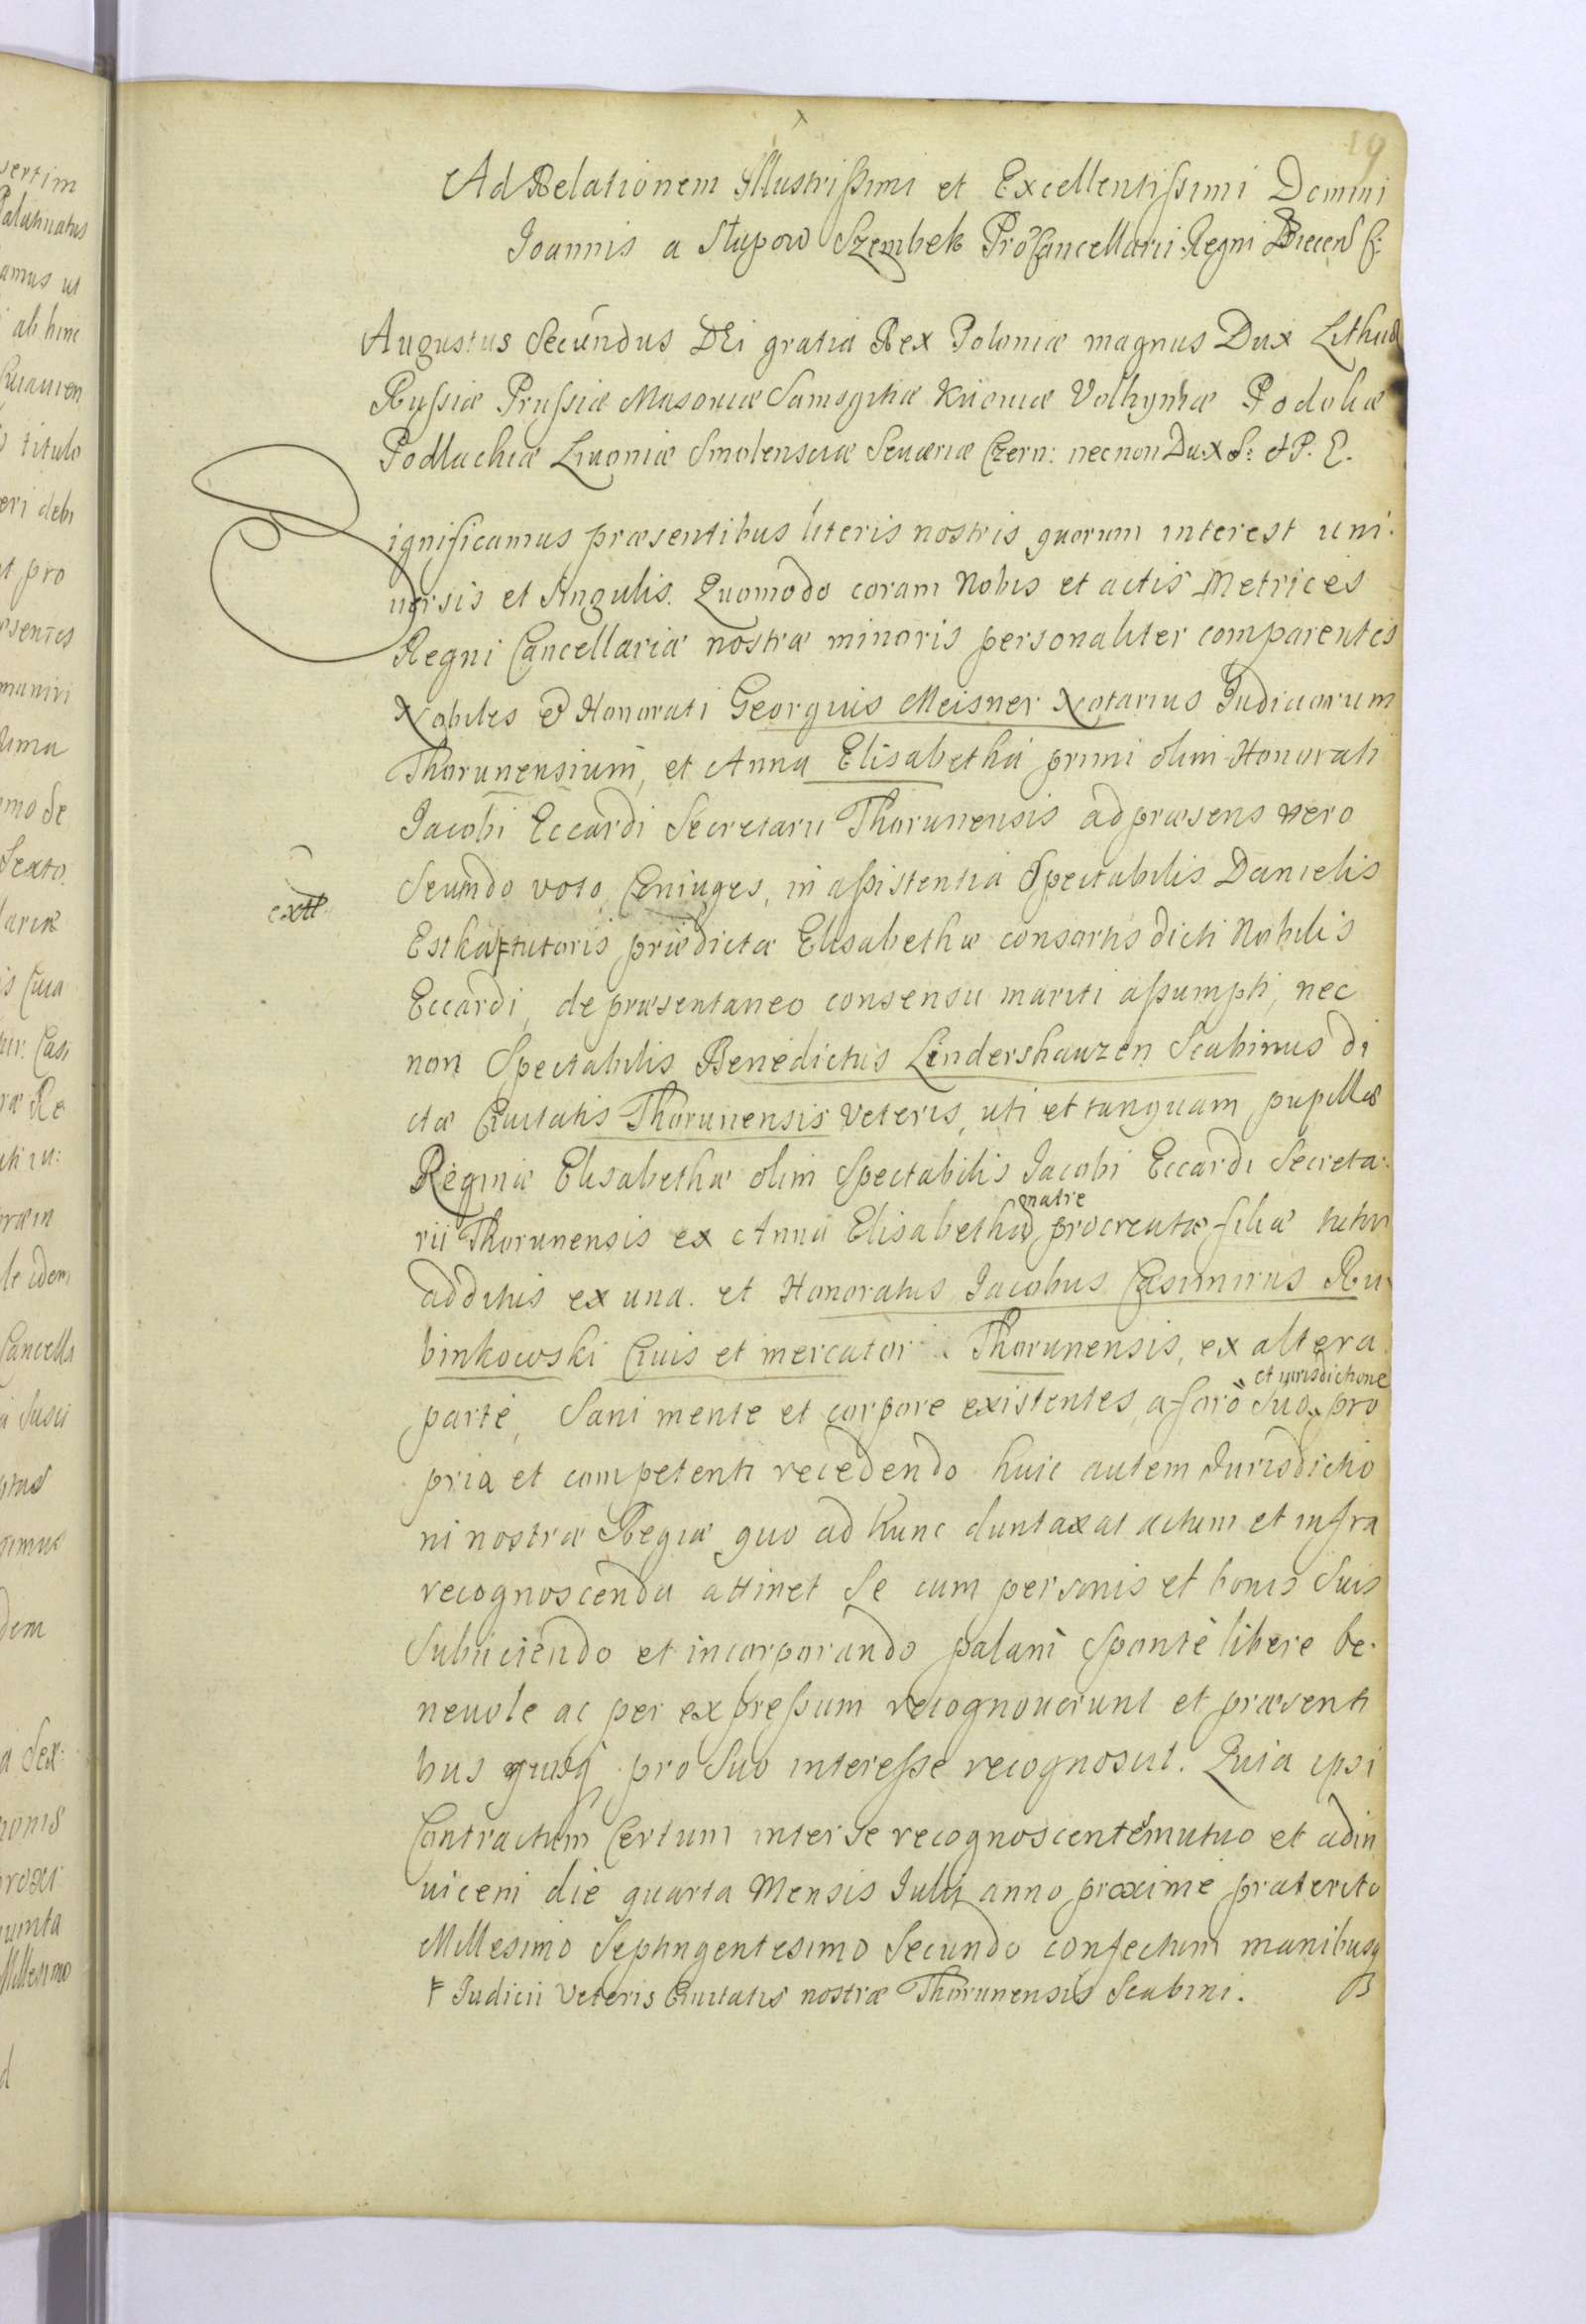 19
Ad Relationem Illustrissimi et Excellentissimi Domini
Joannis a Słupow Szembek ProCancellarii Regni Biecens C:
Augustus Secundus DEi gratia Rex Poloniæ magnus Dux Lithuæ
Russiæ Prussiæ Masoviæ Samogitiæ Kijoviæ Volhyniæ Podoliæ
Podlachiæ Livoniæ Smolensciæ Severiæ Czern: necnon Dux S: et P. E.
Significamus præsentibus literis nostris quorum interest uni-
uersis et singulis. Quomodo coram Nobis et actis Metrices
Regni Cancellariæ nostræ minoris personaliter comparentes
Nobiles et Honorati Georgius Meisner Notarius Judiciorum
Thorunensium, et Anna Elisabetha primi olim Honorati
Jacobi Eccardi Secretarii Thorunensis ad præsens vero
Secundo voto Coniuges, in assistentia Spectabilis Danielis
extt
Estka Ꞙ tutoris prædictæ Elisabethæ consortis dicti Nobilis
Eccardi, de præsentaneo consensu mariti assumpti, nec
non Spectabilis Benedictus Lindershauzen Scabinus di
ctæ Ciuitatis Thorunensis veteris, uti et tanquam pupillæ
Reginæ Elisabethæ olim Spectabilis Jacobi Eccardi Secreta-
rii Thorunensis ex Anna Elisabetha matre procreatæ filiæ tutor
additus ex una. et Honoratus Jacobus Casimirus Ru-
binkowski Ciuis et mercator Thorunensis, ex altera
parte, Sani mente et corpore existentes, a foro suo et iurisdictione pro
pria et competenti recedendo huic autem Jurisdictio
ni nostræ Regiæ quo ad hunc duntaxat actum et infra
recognoscenda attinet Se cum personis et bonis Suis
Subiiciendo et incorporando palam Sponte libere be-
neuole ac per expressum recognouerunt et præsenti
bus quisq pro Suo interesse recognoscit. Quia ipsi
Contractum Certum inter se recognoscentes mutuo et adin
uicem die quarta Mensis Julij anno proxime præterito
Millesimo Septingentesimo Secundo confectum manibusq
Ꞙ Judicii Veteris Ciuitatis nostræ Thorunensis Scabini.